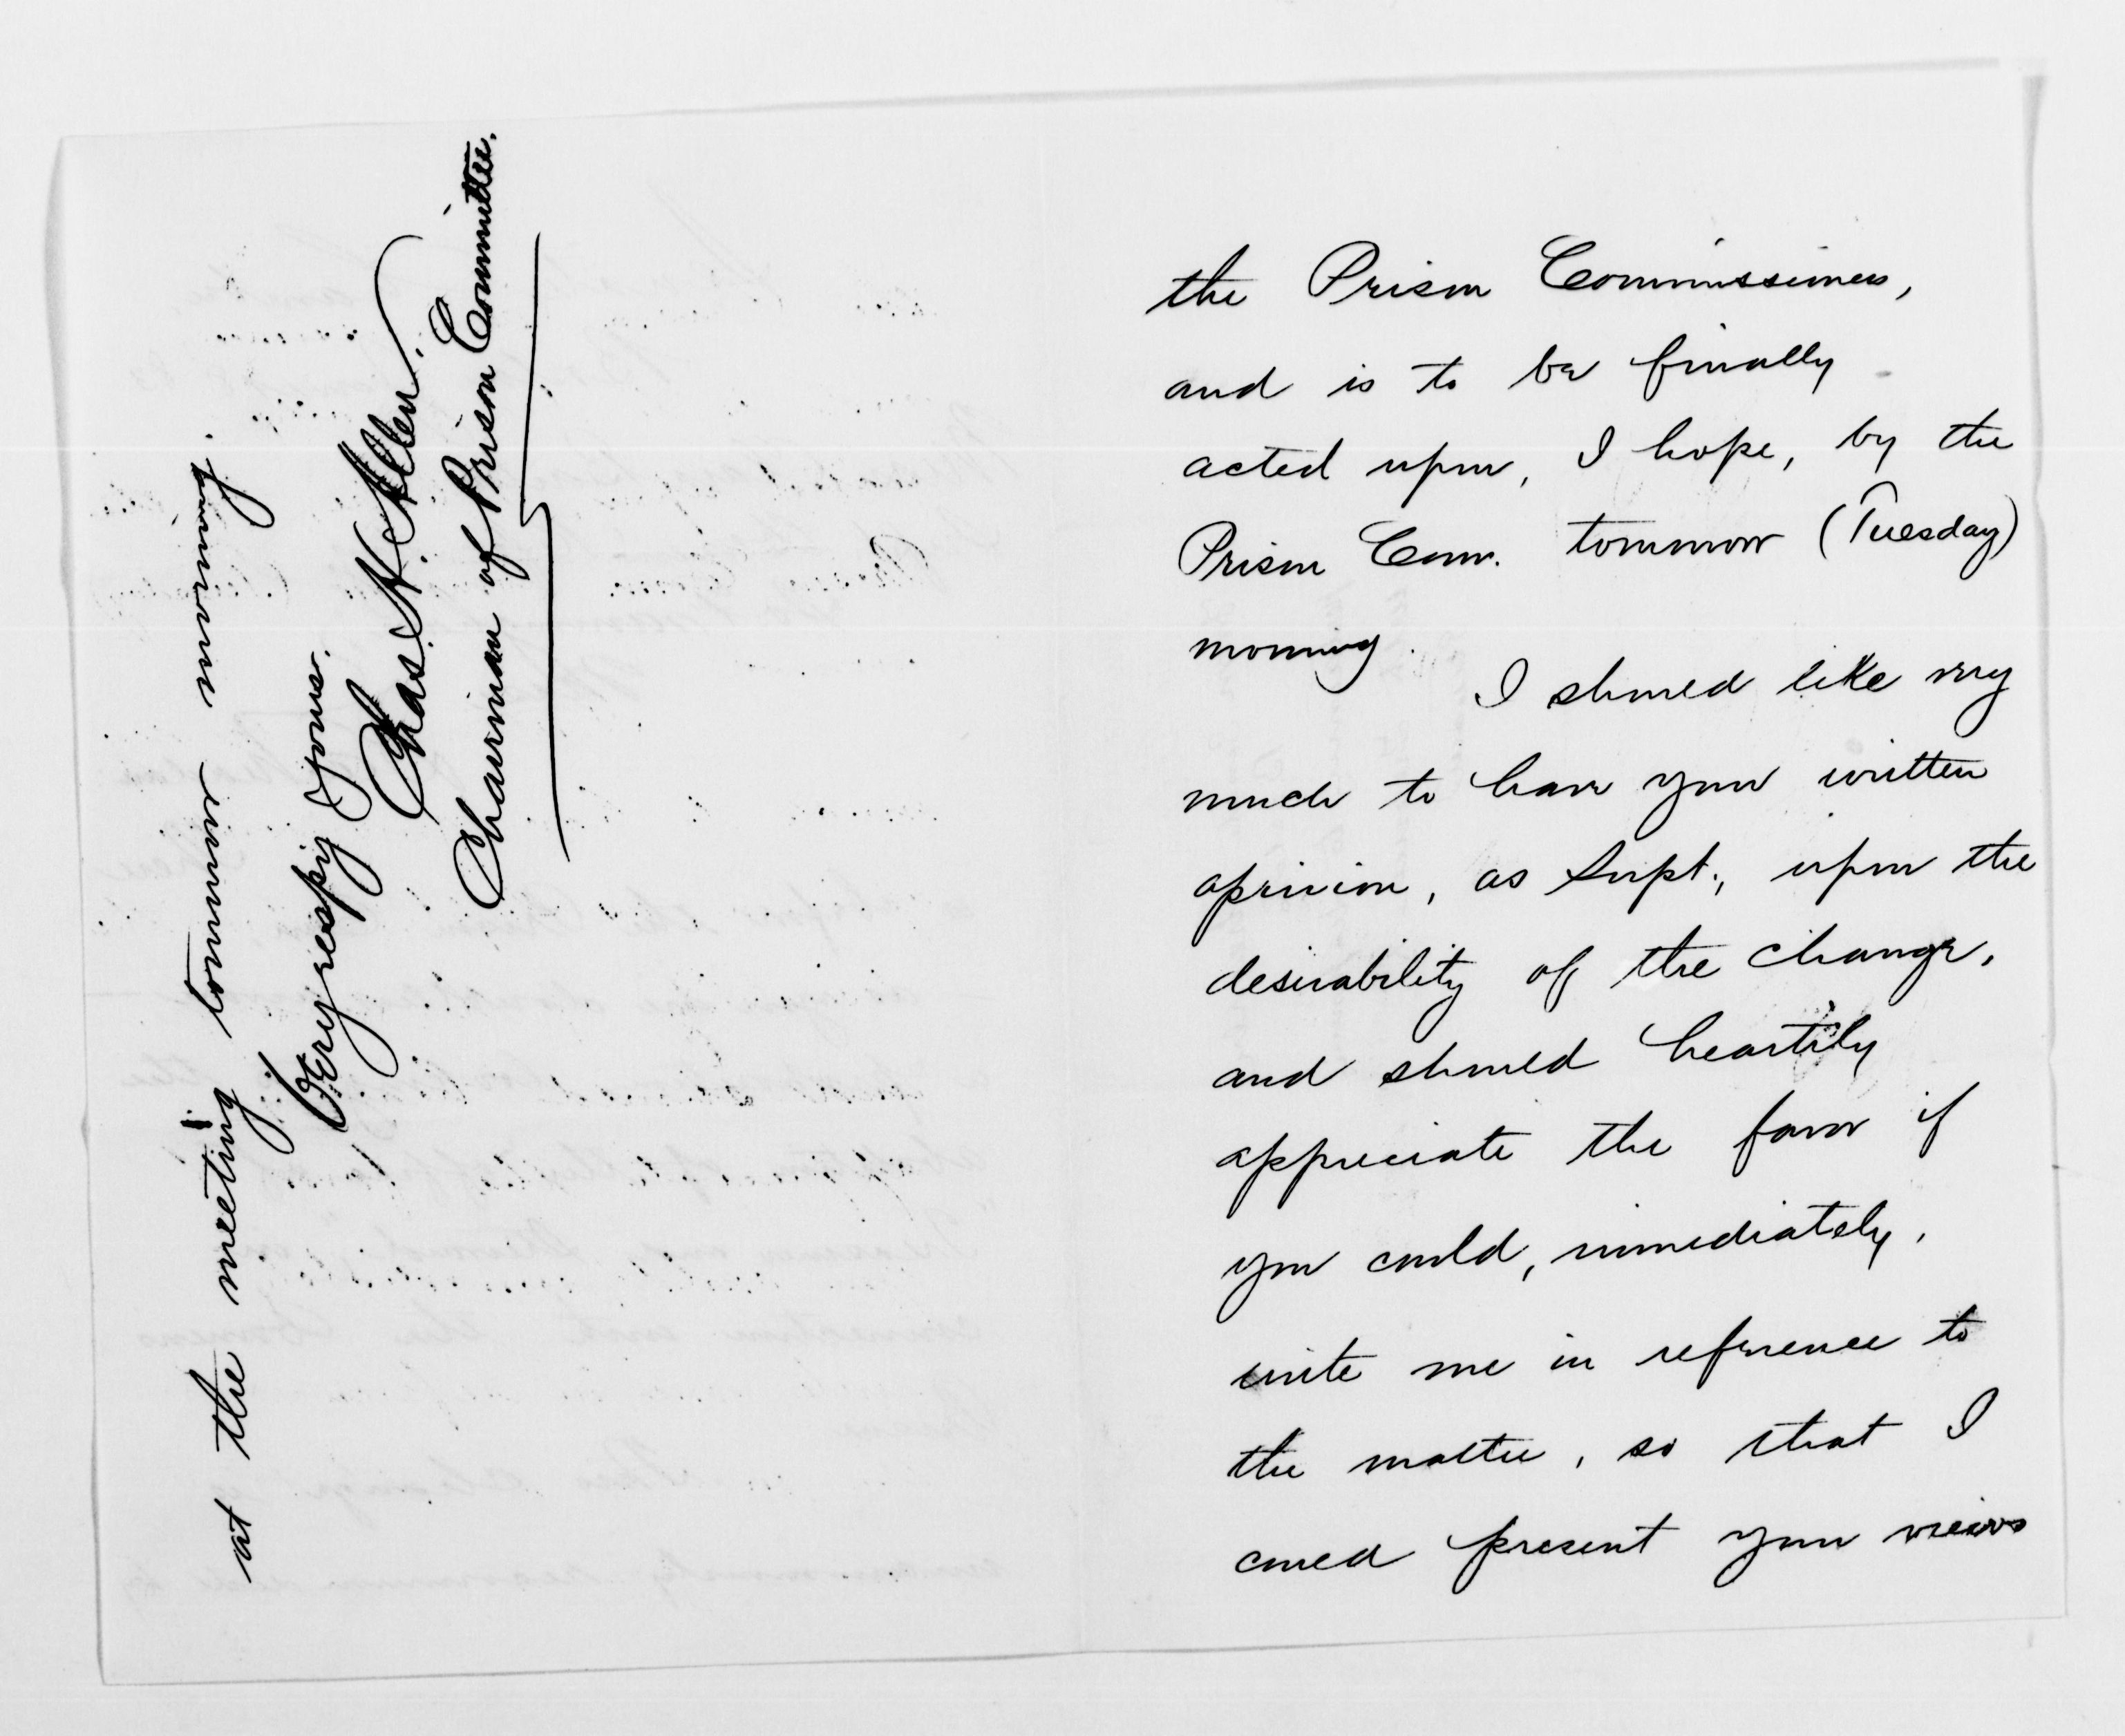 the Prison Commissioners,
and is to be finally
acted upon, I hope, by the
Prison Com. tomorrow (Tuesday)
morning.
I should like very
much to have your written
opinion, as Supt., upon the
desirability of the change,
and should heartily
appreciate the favor if
you could, immediately,
write me in reference to
the matter, so that I
could present your views
at the meeting tomorrow morning.
Very respy yours.
Chas. H. Allen.
Chairman of Prison Committee.